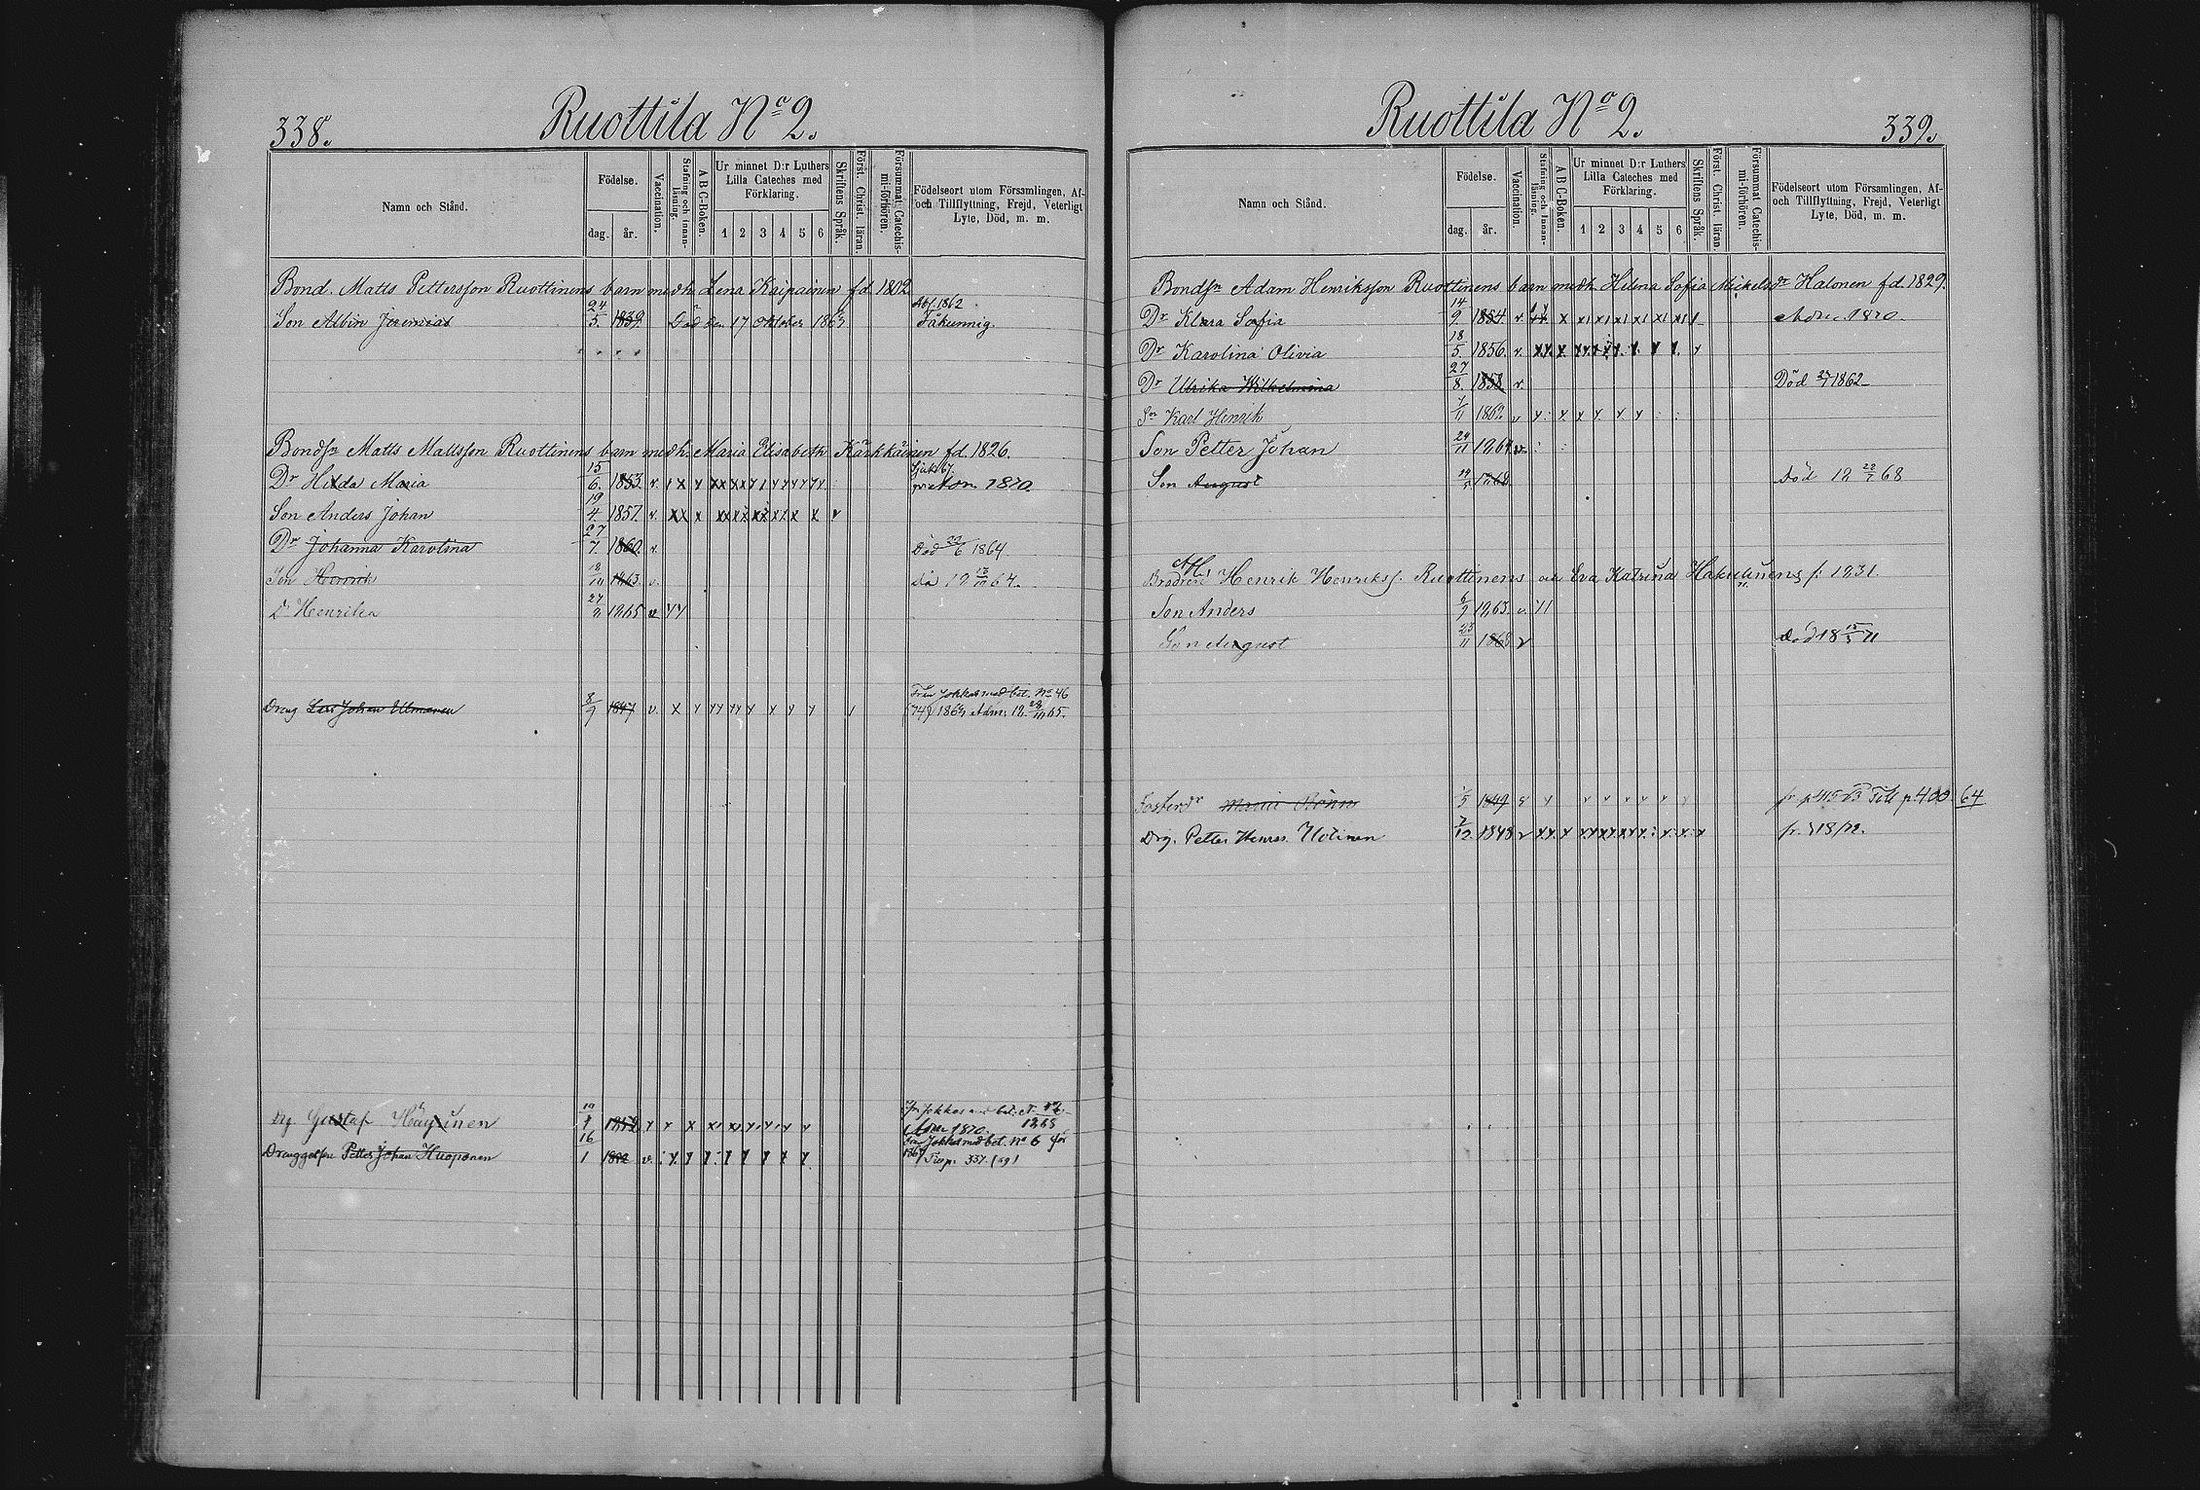 338.
Ruottila No 2.
Namn och Stånd.
Födelse.
dag.
år.
Vaccination.
Stafning och Innanläsning.
A B C-Boken.
Ur minnet D:r Luthers Lilla Cateches med Förklaring.
1 2 3 4 5 6
Skriftens Språk.
Först. Christ. läran.
Försummat Catechismi-förhören.
Födelseort utom Församlingen, Af- och Tillflyttning, Frejd, Veterligt Lyte, Död, m. m.
Bond. Matts Pettersson Ruottinens barn med h. Lena Kaipainen fd 1802
Son Albin Jeremias 24/5. 1839. Död den 17 Oktober 1863 Abs. 1862 Fåkunnig.
Bondsn Matts Mattsson Ruottinens barn med h. Maria Elisabeth Kärkkäinen fd. 1826.
Dr Hilda Maria 15/6. 1853. v. Sjuk 67. Adm. 1870.
Son Anders Johan 19/4. 1857. v.
Dr Johanna Karolina 27/7. 1860. v. Död 1864
Son Henrik 1863. v. 64.
Dr Henrika 27 1865 v
Dräng Lars Johan Ullmanen 8/9 1847 v. Från Jokkas med bet. No 46
Adm. 18 65.
Drg. Gustaf Häyrinen Adm. 1870. 1868
Drenggosse Petter Johan Huoponen 16/1 v. Jokkas med bet. No 6 för
1867 p. 337.
339.
Ruottila No 2.
Namn och Stånd.
Födelse.
dag.
år.
Vaccination.
Stafning och Innanläsning.
A B C-Boken.
Ur minnet D:r Luthers Lilla Cateches med Förklaring.
1 2 3 4 5 6
Skriftens Språk.
Först. Christ. läran.
Försummat Catechismi-förhören.
Födelseort utom Församlingen, Af- och Tillflyttning, Frejd, Veterligt Lyte, Död, m. m.
Bondsn Adam Henriksson Ruottinens barn med h. Helena Sofia Mickelsdr Halonen fd. 1829.
Dr Klara Sofia 14/9. 1854. v. Adm. 1870.
Dr Karolina Olivia 18/5. 1856. v.
Dr Ulrika Wilhelmina 27/8. 1858. v. Död 1862
Sn Karl Henrik v
Son Petter Johan 24/11 1864 v.
Son August 1868 Död 18 68
Henrik Henrikss. Ruottinens o. Eva Katrina Hakulinens f. 1831.
Son Anders 6/9 1863. v.
Son August 1868 v Död 18 71
Fosterdr Maria 1849 Till p. 400. 64
Drg. Petter Henrss. Holinen 7/12. 1848 v